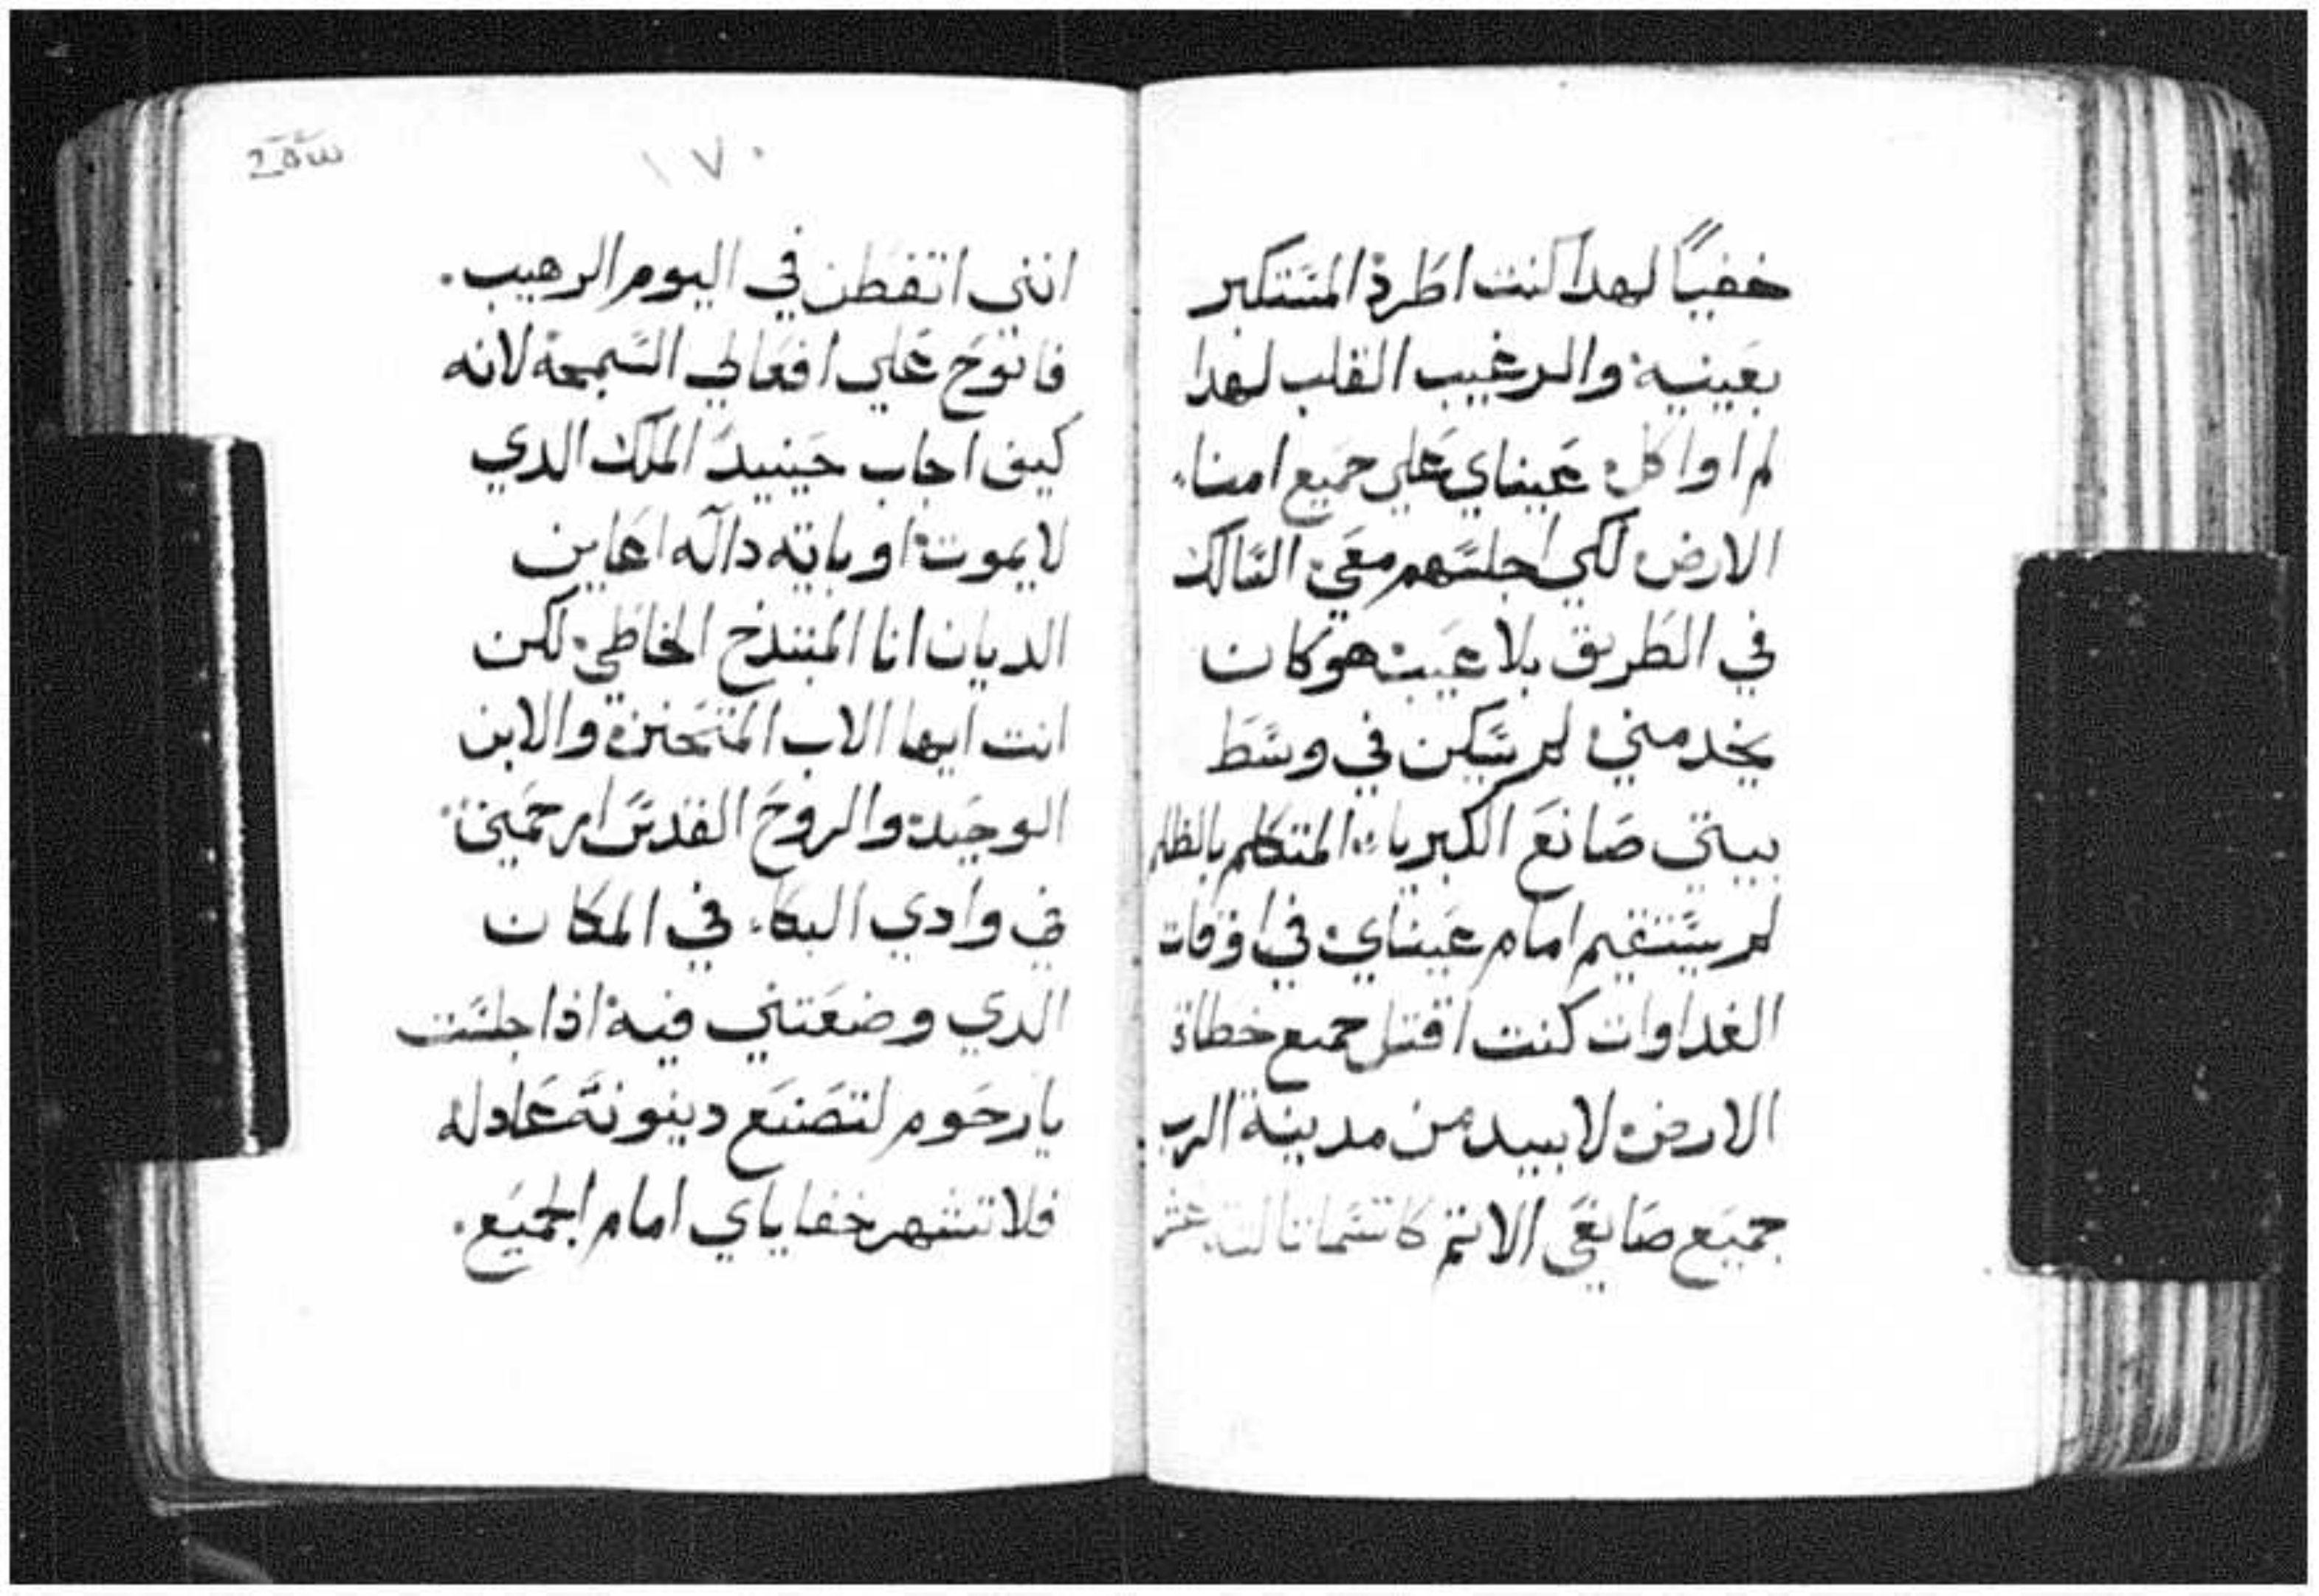 خفيًا لهدا كنت اطرد المستكبر
بعينيه والرغيب القلب لهدا
لم اواكل عيناي علي جميع امناء
الارض لكي اجلسهم معي السالك
في الطريق بلا عيب هو كان
يخدمني لم يسكن في وسط
بيتي صانع الكبرياء المتكلم بالظلم
لم يستقيم امام عيناي في اوقات
الغداوات كنت اقتل جميع خطاة
الارض لابيد من مدينة الرب
جميع صانعي الاثم
١٧٠
انني اتفطن في اليوم الرهيب.
فانوح علي افعالي السمجة لانه
كيف اجاب حينيد الملك الدي
لا يموت او باية دالة اعاين
الديان انا المبتدخ الخاطي لكن
انت ايها الاب المتحنن والابن
الوحيد والروح القدس ارحمني
في وادي البكاء في المكان
الدي وضعتني فيه اذا جلست
يا رحوم لتصنع دينونة عادله
فلا تشهر خفاياي امام الجميع.